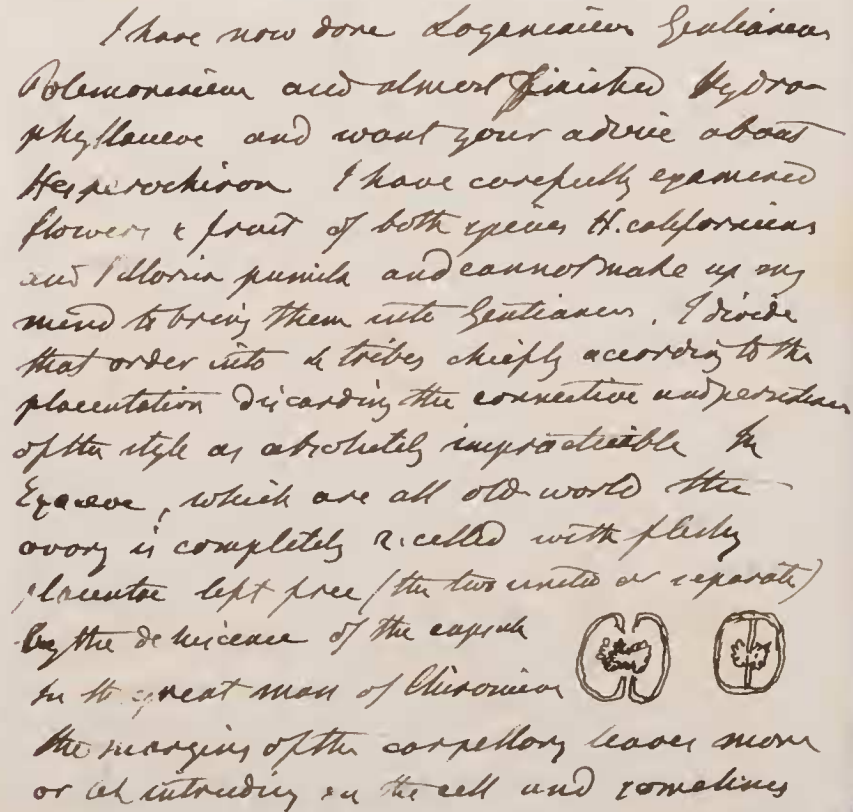 I have now done Loganiaceae Gentianeae
Polemoniaceae and almost finished Hydro-
phyllaceae and want your advice about
Hesperochiron I have carefully examined
flowers & fruit of both species H. californicus
and Villarsia pumila and cannot make up my
mind to bring them into Gentianeae. I divide
that order into 4 tribes chiefly according to the
placentation discarding the connective and persistence
of the style as absolutely impracticable In
Exaceae, which are all old world the
ovary is completely 2-celled with fleshy
placentae left free (the two united or separate)
by the dehiscence of the capsule
In the great mass of Chironieae
the margins of the carpellary leaves more
or less intruding in the cell and sometimes